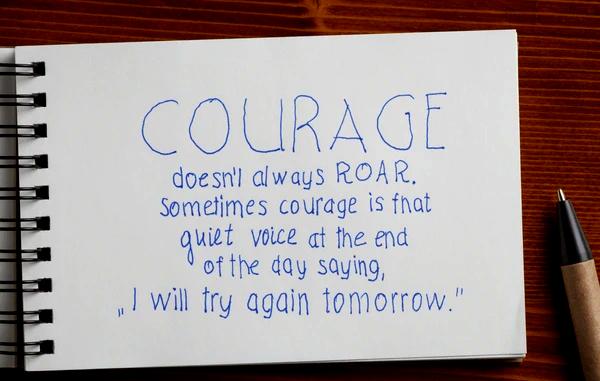 COURAGE
doesn't always ROAR.
Sometimes courage is that
quiet voice at the end
of the day saying,
„I will try again tomorrow."